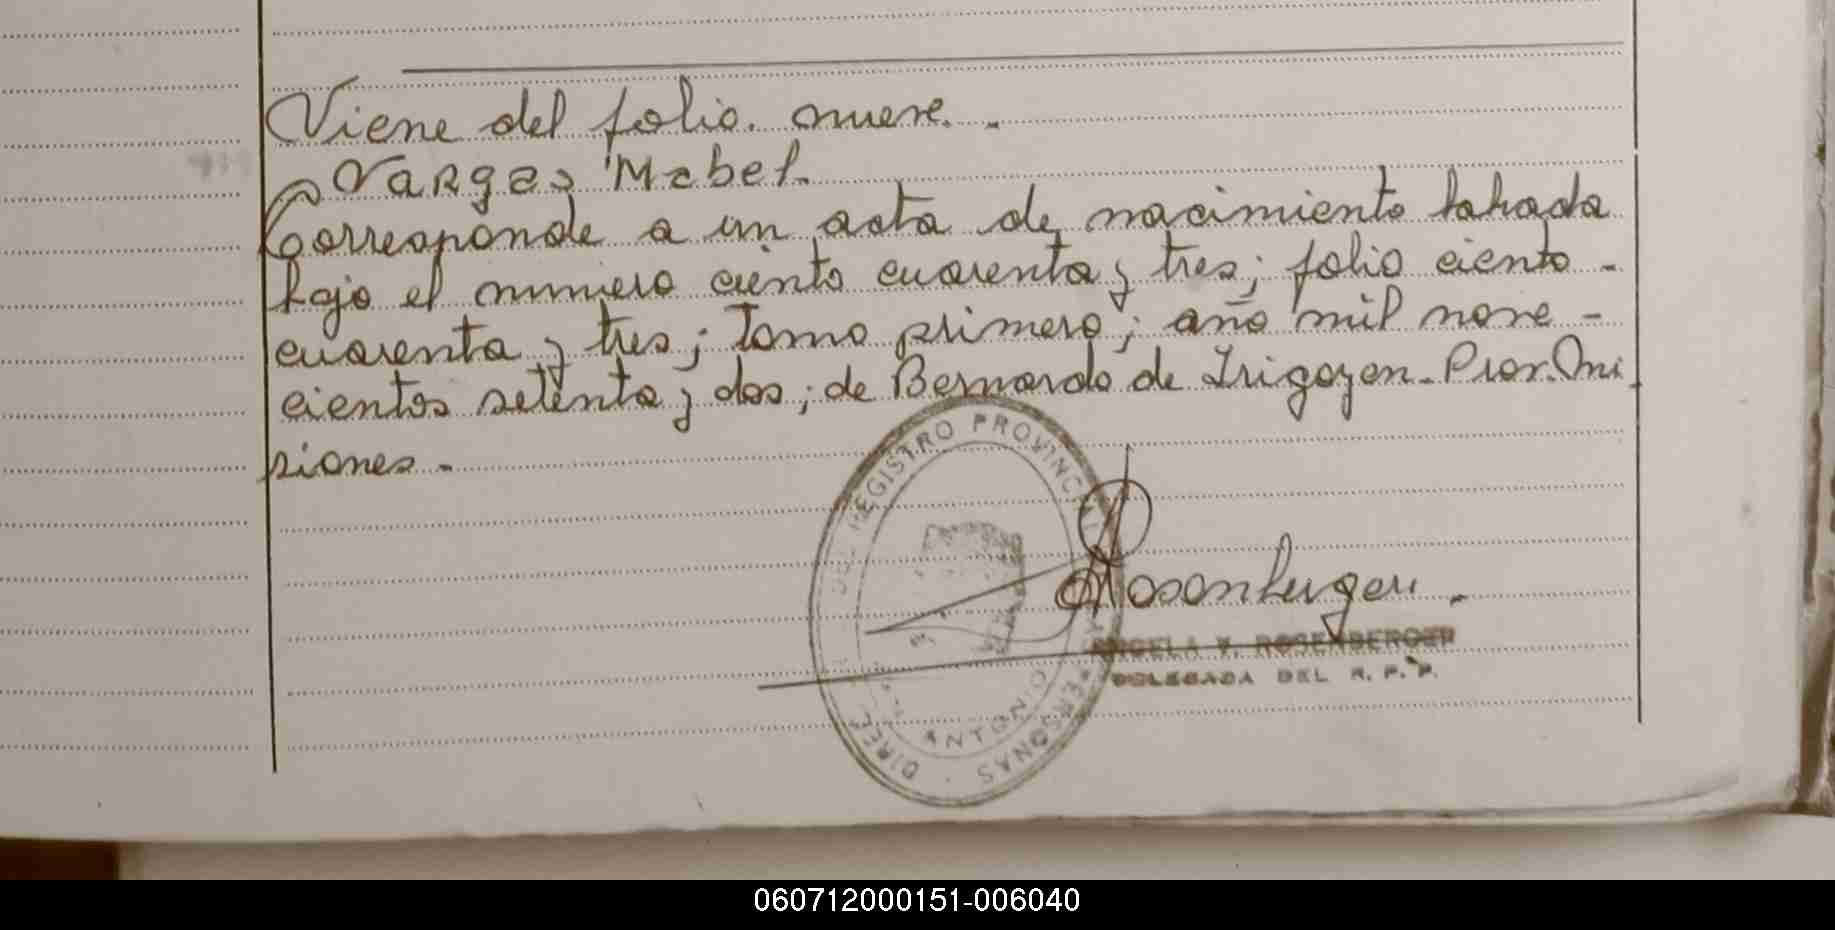 Viene del folio. nueve. -
Vargas Mabel.
Corresponde a un acta de nacimiento labrada
bajo el numero ciento cuarenta y tres; folio ciento -
cuarenta y tres; Tomo primero; año mil nove -
cientos setenta y dos; de Bernardo de Irigoyen - Prov. Mi
siones. -
REGISTRO PROVINCIAL
PERSONAS
ANTONIO
Rosenberger.
ANGELA V. ROSENBERGER
DELEGADA DEL R. P. P.
060712000151-006040